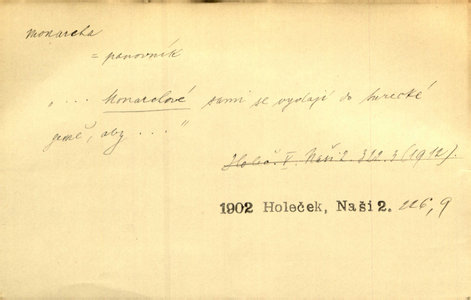 monarcha
= panovník
„ . . . Monarchové sami se vydají do turecké
země, aby . . . "
Holeč. V. Naši 2. 312. 3 (1912).
1902 Holeček, Naši 2. 226, 9